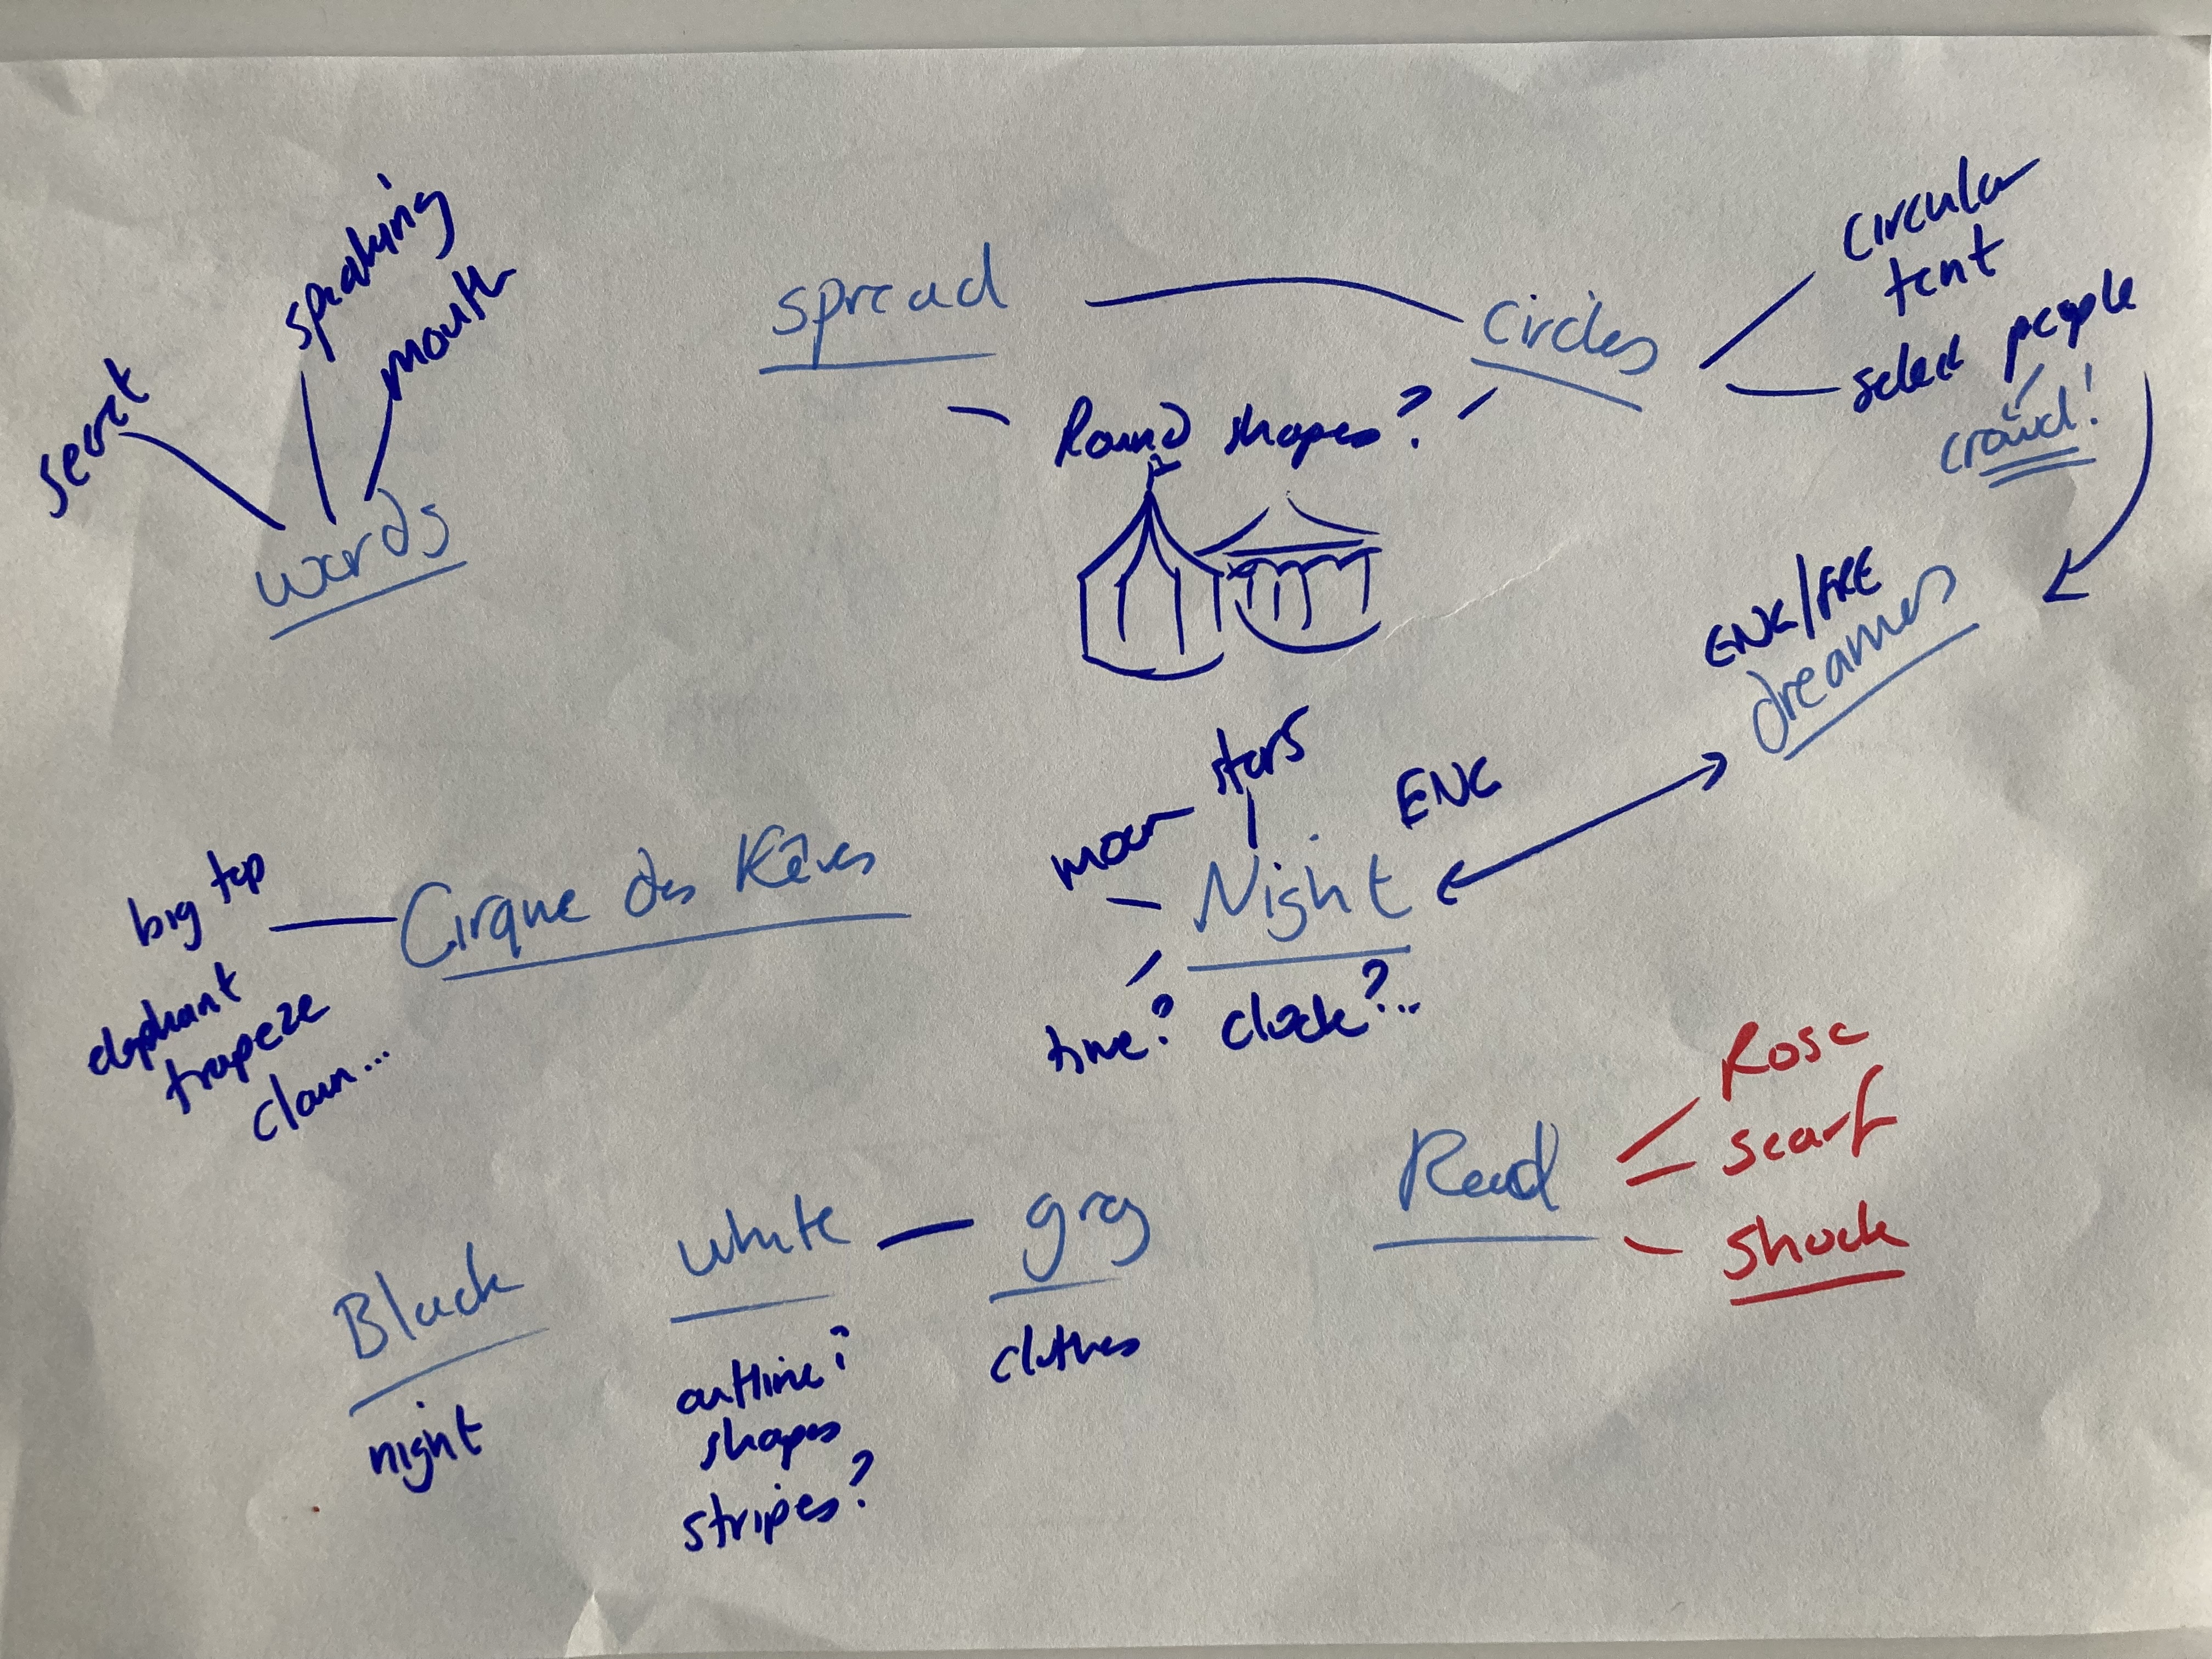 secret
speaking
mouth
words
spread
circles
circular
tent
select people
crowd!
Round shapes?
ENG/FRE
dreamers
stars
moon
ENG
Night
time? clock?...
big top
elephant
trapeze
clown...
Cirque des Rêves
Black
night
white
outline?
shapes
stripes?
grey
clothes
Read
Rose
scarf
shock